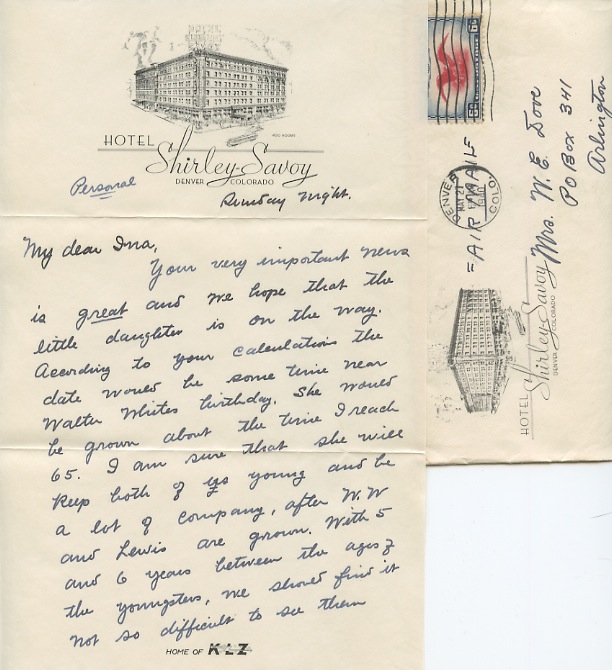 HOTEL
Shirley-Savoy
DENVER COLORADO
400 ROOMS
Personal
Sunday Night.
My dear Ina,
Your very important news
is great and we hope that the
little daughter is on the way.
According to your calculations the
date would be some time near
Walter Whites birthday. She would
be grown about the time I reach
65. I am sure that she will
keep both of us young and be
a lot of company, after W.W
and Lewis are grown. With 5
and 6 years between the ages of
the youngsters, we should find it
not so difficult to see them
HOME OF KLZ
6¢ 6¢
DENVER
COLO.
MAY 21
1940
=AIR MAIL=
Mrs. W. E. Dove
PO Box 341
Arlington
HOTEL
Shirley-Savoy
DENVER COLORADO